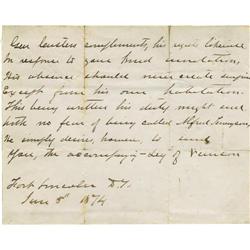 Gen Custers compliments, his regrets likewise
In response to your kind invitation,
His absence should never create surprise
Except from his own habitation.
This being written his duty might end
With no fear of being called Alfred Tennyson,
He simply desires, however, to send
You, the accompanying Leg of Venison
Fort Lincoln D.T.
June 8th 1874